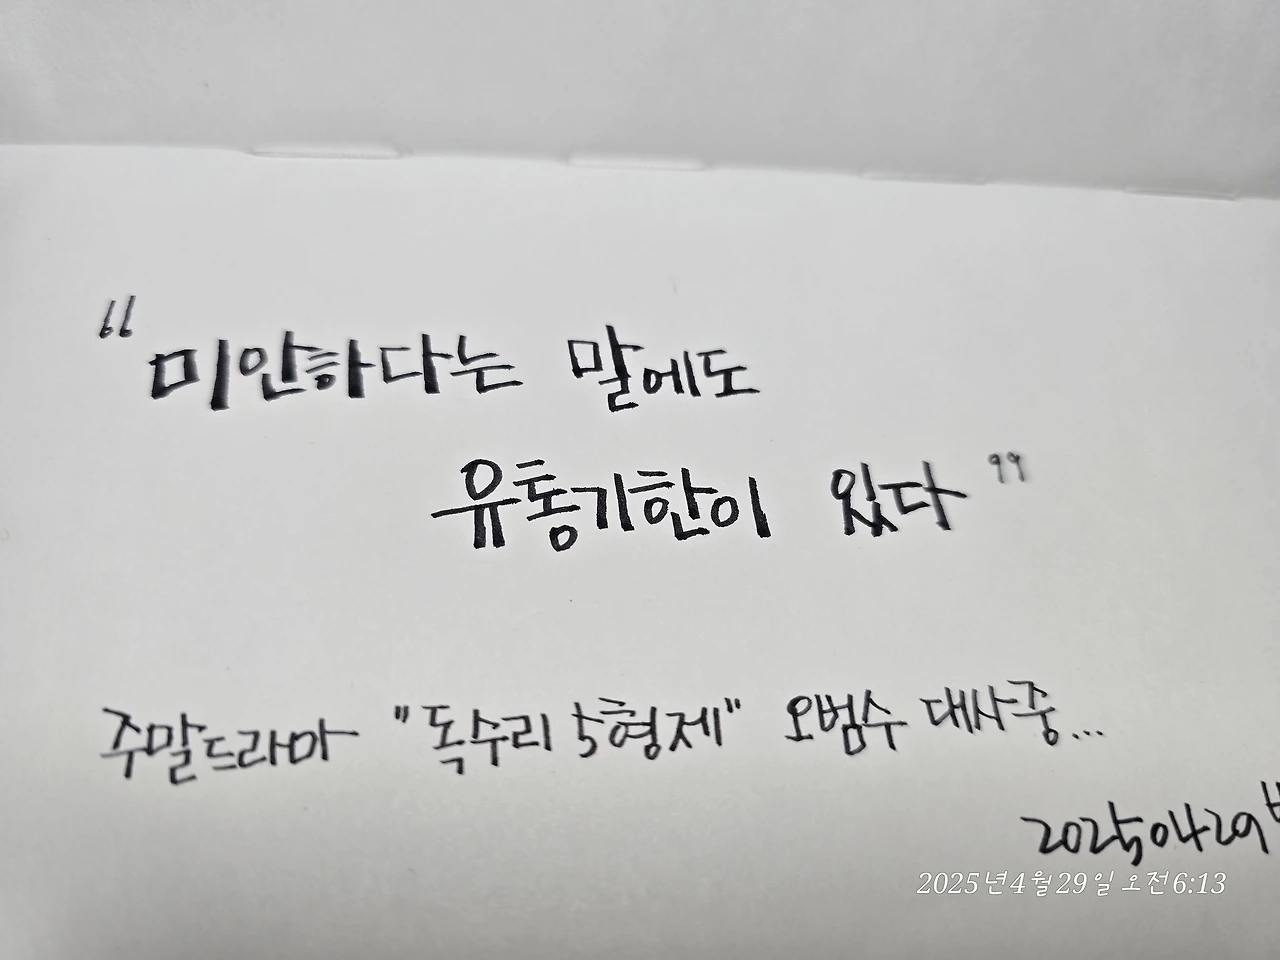 “미안하다는 말에도
유통기한이 있다”
주말드라마 "독수리 5형제" 오범수 대사중...
20250429
2025년4월29일 오전6:13